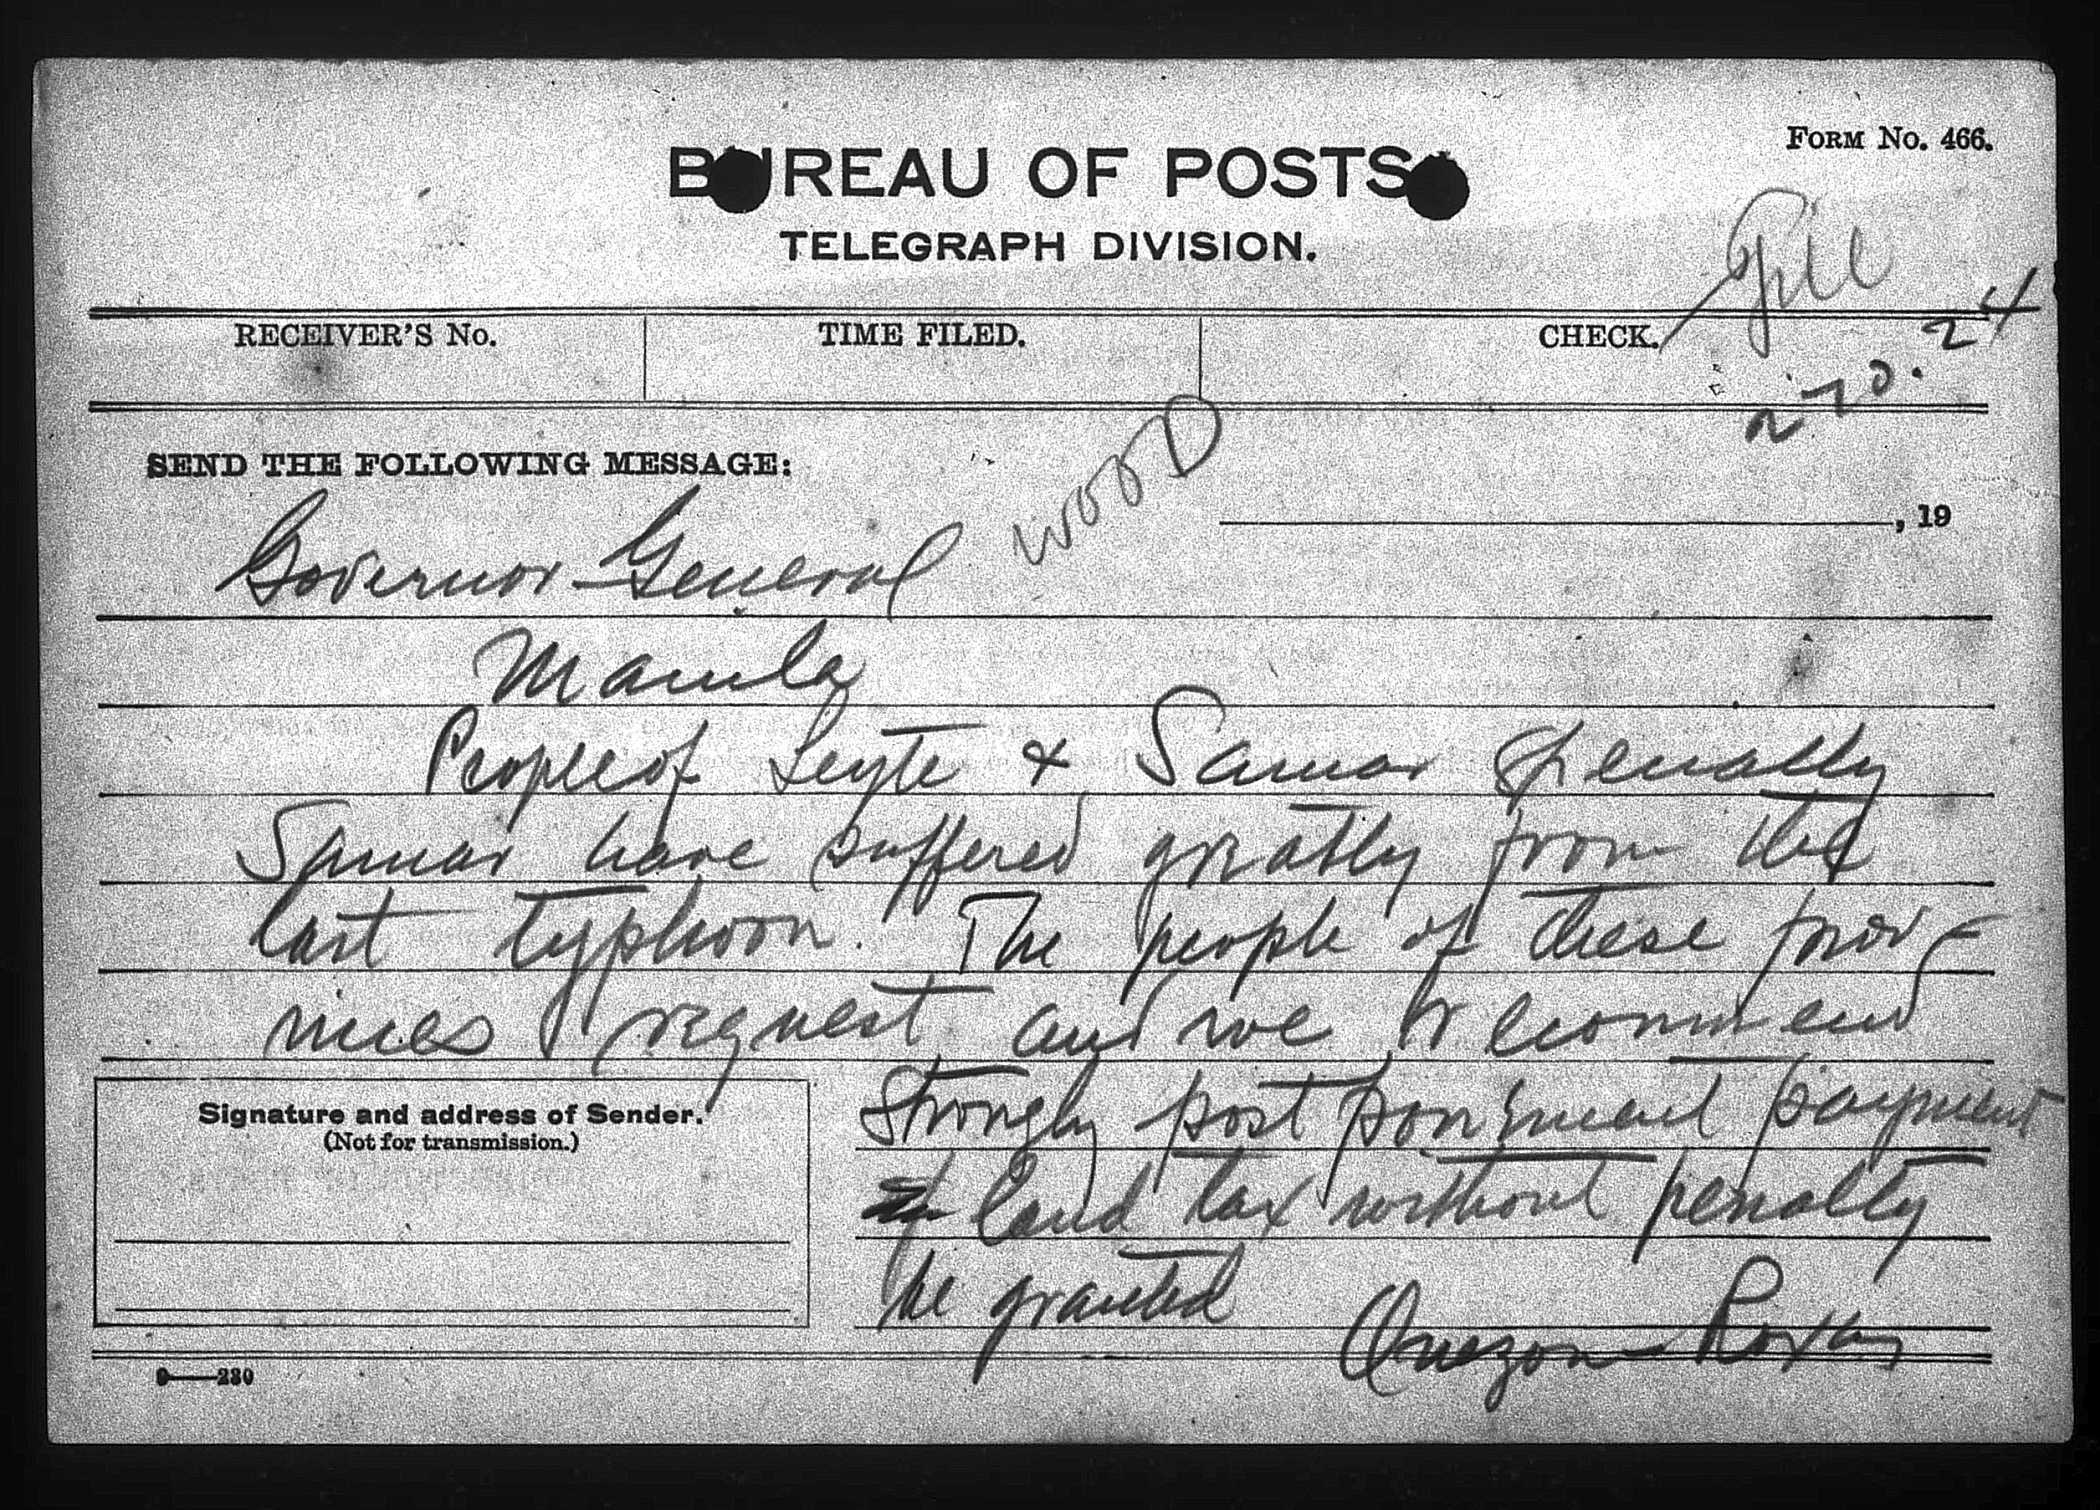 FORM No. 466.
BUREAU OF POSTS
TELEGRAPH DIVISION.
RECEIVER'S No.
TIME FILED.
CHECK.
SEND THE FOLLOWING MESSAGE:
WOOD
, 19
Governor-General
Manila
People of Leyte & Samar specially
Samar have suffered greatly from the
last typhoon. The people of these prov-
inces request and we recommend
Signature and address of Sender.
(Not for transmission.)
strongly postponement payment
of land tax without penalty
be granted
Quezon - Roxas
9—230